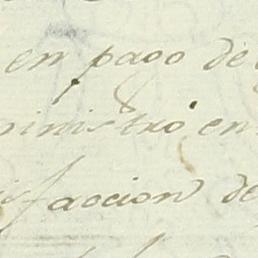 en pago de
ministró en
isfaccion de